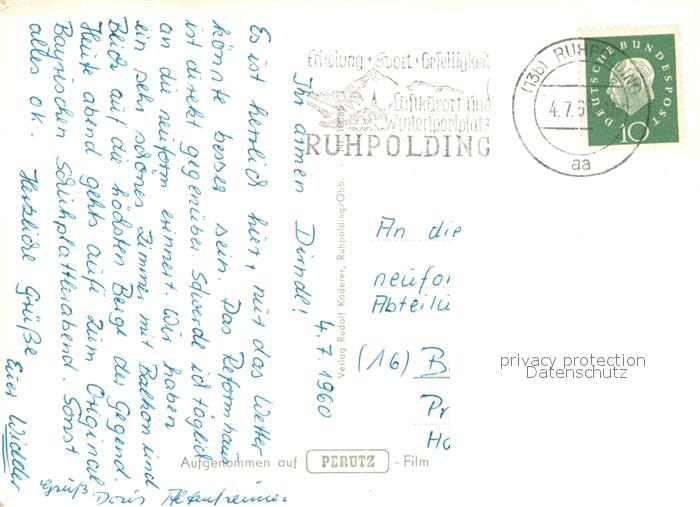 Erholung + Sport · Geselligkeit
Luftkurort und
Wintersportplatz
RUHPOLDING
(13b) RUHPOLDING
4.7.6
aa
DEUTSCHE BUNDESPOST
10
4.7.1960
Ihr armen Dirndl!
Es ist herrlich hier, nur das Wetter
könnte besser sein. Das Reformhaus
ist direkt gegenüber. So werde ich täglich
an die neuform erinnert. Wir haben
ein sehr schönes Zimmer mit Balkon und
Blick auf die höchsten Berge der Gegend.
Heute abend gehts aufi zum Original
Bayrischen Schuhplattlerabend. Sonst
alles ok.
Herzliche Grüße
Euer Widder
Gruß Doris
Verlag Rudolf Koderer, Ruhpolding/Obb.
An die
neufor
Abteilu
(16) B
Pr
Ho
privacy protection
Datenschutz
Aufgenommen auf PERUTZ - Film